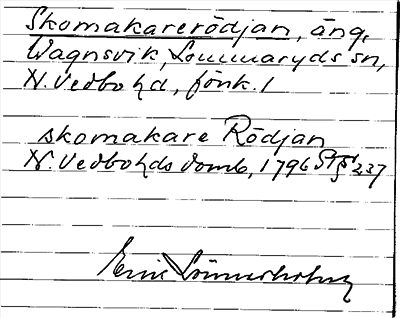 Skomakarerödjan, äng,
Wagnsvik, Lommaryds sn,
N. Vedbo hd, förk. 1
skomakare Rödjan
N. Vedbo hds domb, 1796 St p § 237